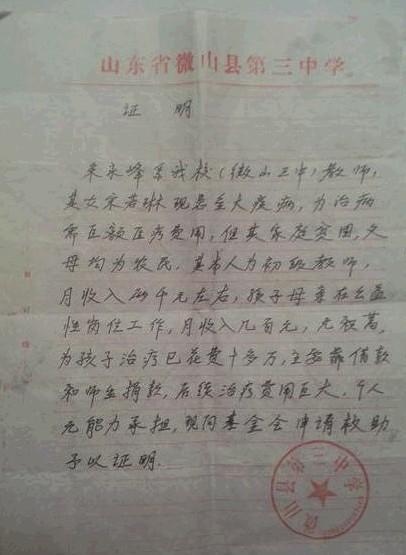 山东省微山县第三中学
证 明
宋永峰系我校(微山三中)教师,
其女宋若琳现患重大疾病,为治病
需巨额医疗费用,但其家庭贫困,父
母均为农民.其本人为初级教师,
月收入 千元左右,孩子母亲在公益
性岗位工作,月收入几百元,无积蓄,
为孩子治疗已花费十多万,主要靠借款
和师生捐款,后续治疗费用巨大.个人
无能力承担,现向基金会申请救助
予以证明.
微山县第三中学